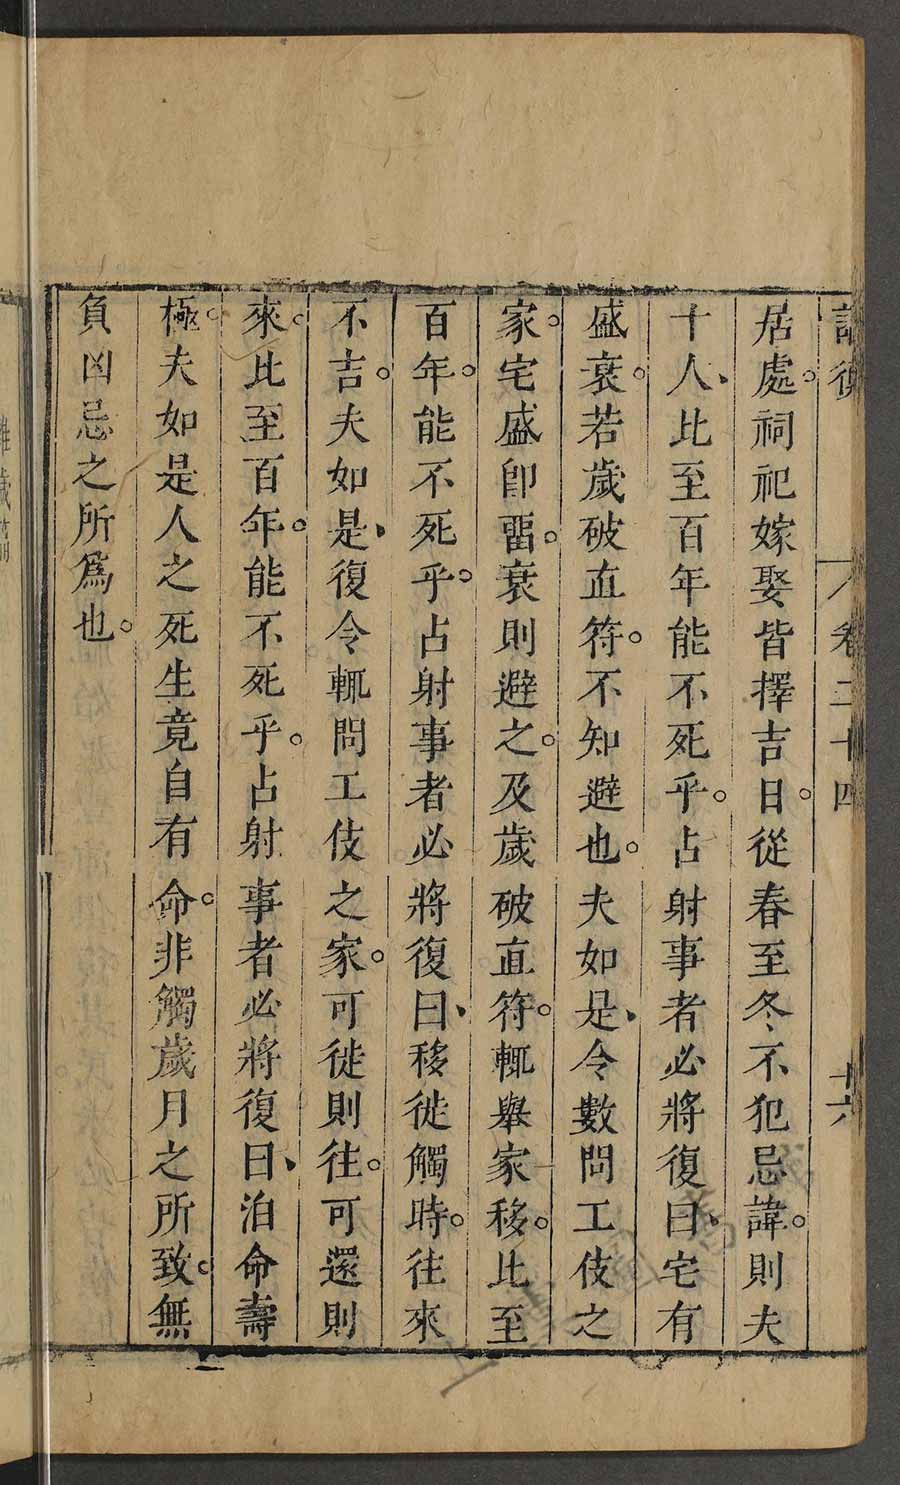 卷二十四
十六
居處。祠祀嫁娶皆擇吉日。從春至冬、不犯忌諱。則夫
十人、比至百年能不死乎。占射事者必將復曰、宅有
盛衰。若歲破直符。不知避也。夫如是、令數問工伎之
家。宅盛卽畱。衰則避之。及歲破直符。輒舉家移。比至
百年。能不死乎。占射事者必將復曰、移徙觸時。往來
不吉。夫如是、復令輒問工伎之家。可徙則往。可還則
來。比至百年。能不死乎。占射事者必將復曰、泊命壽
極。夫如是人之死生竟自有命。非觸歲月之所致。無
負凶忌之所爲也。